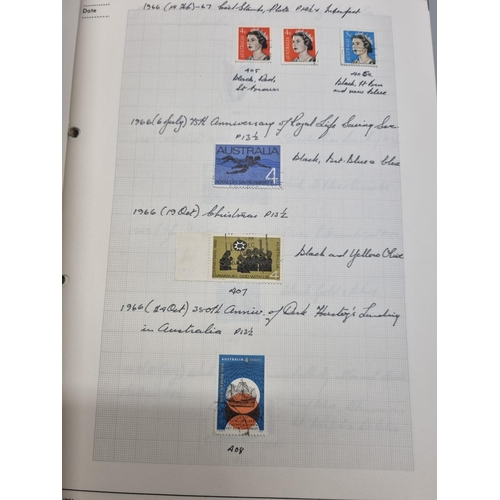 Date
1966 - 67
4 4
405
black, Red,
black, Lt
and new blue
1966 (6 July) 75th Anniversary of Royal Life Saving Soc
P13½
AUSTRALIA
4
black, Brt. Blue & blue
1966 (19 Oct) Christmas P13½
4
407
black and Yellow Olive
1966 (24 Oct) 350th Anniv. of Dirk Hartog's Landing
in Australia P13½
AUSTRALIA 4
408